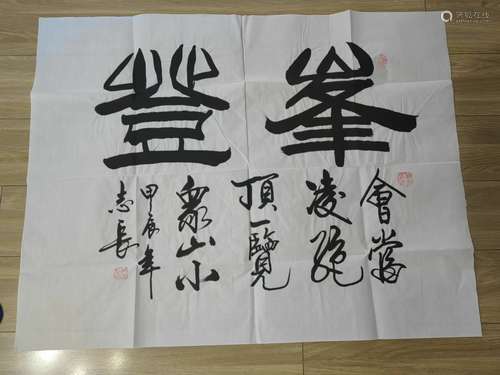 登峯
會當
凌絕
頂一覽
眾山小
甲辰年
志長